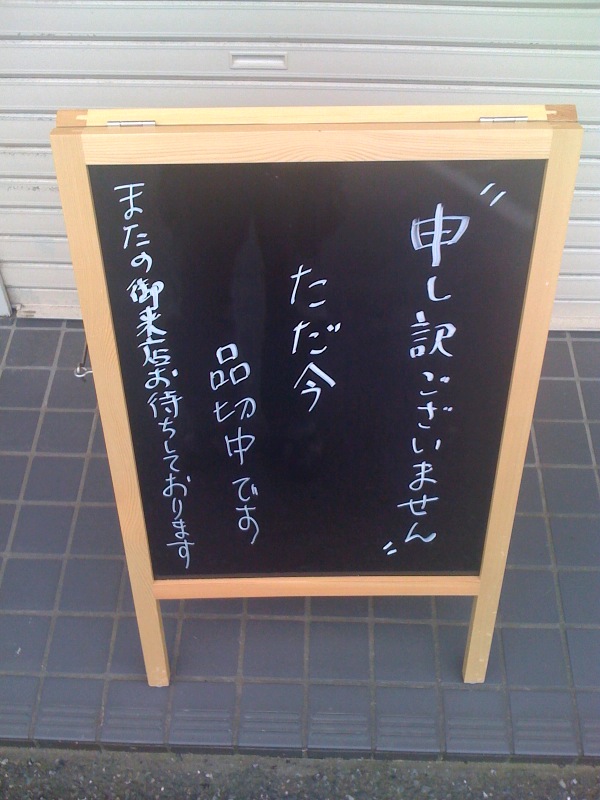 〃申し訳ございません〃
ただ今
品切中です
またの御来店お待ちしております